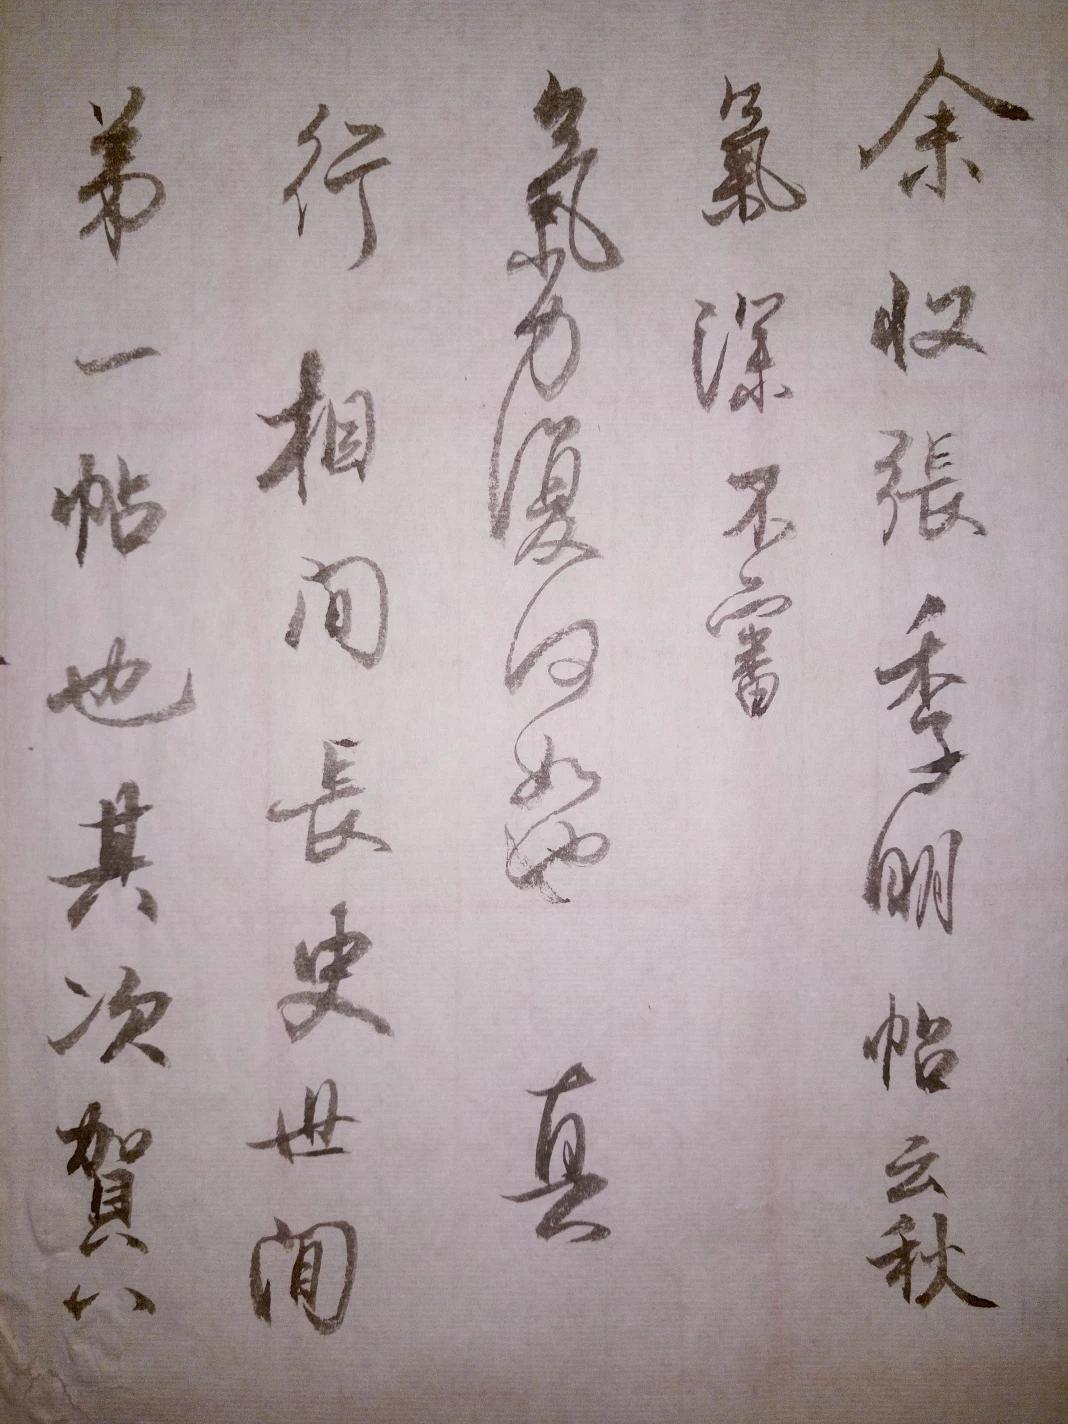 余收張季明帖云秋
氣深不審
氣力復何如也 真
行相間長史世間
第一帖也其次賀八